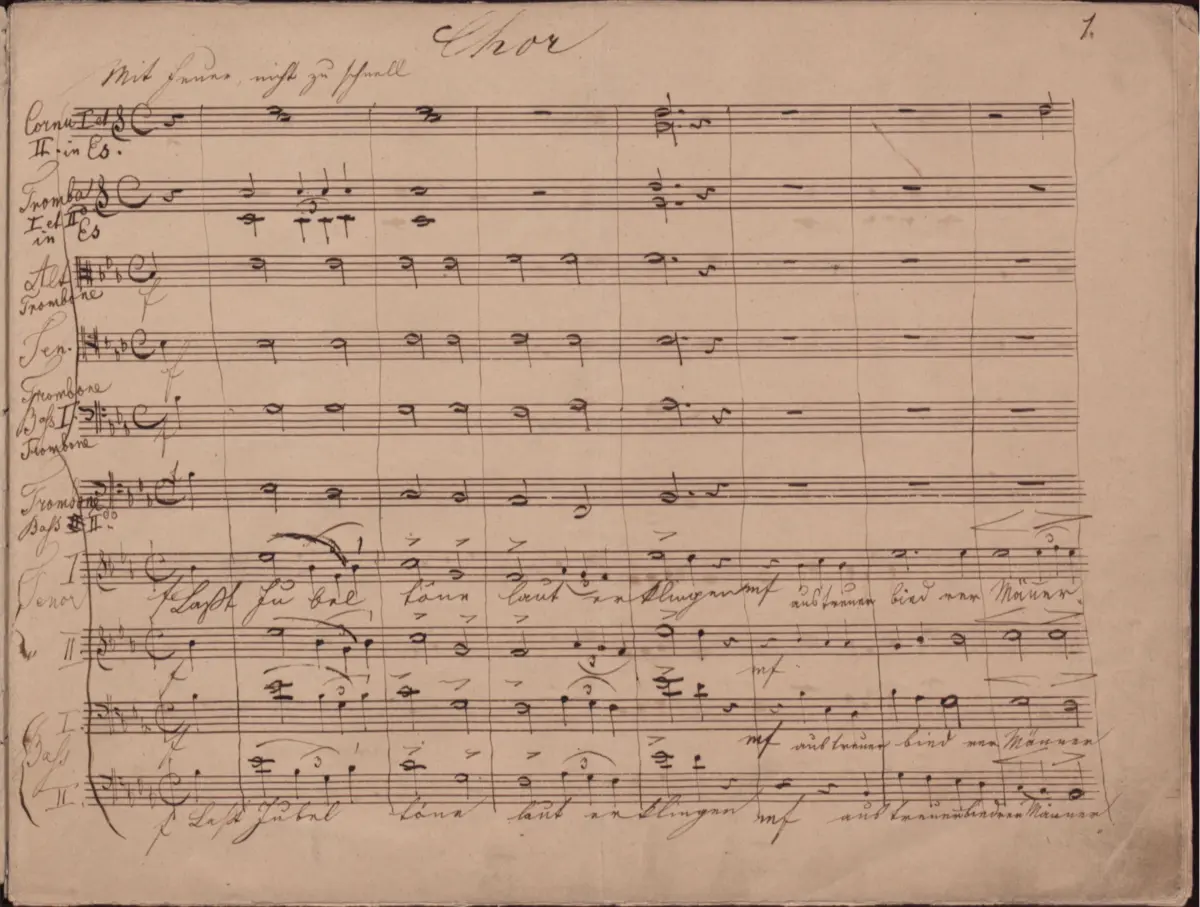 Chor
1.
Mit Feuer, nicht zu schnell
Cornu I et
II. in Es.
Tromba
I et II
in Es
Alt
Trombone
f
Ten.
f
Trombone
Baß I.
Trombone
f
Trombone
Baß II.
Tenor
I
f Laßt Ju bel töne laut er klingen mf aus treuer bied rer Männer
II
f mf
Baß
I.
f mf aus treuer bied rer Männer
II.
f Laßt Jubel töne laut er klingen mf aus treuer biedrer Männer